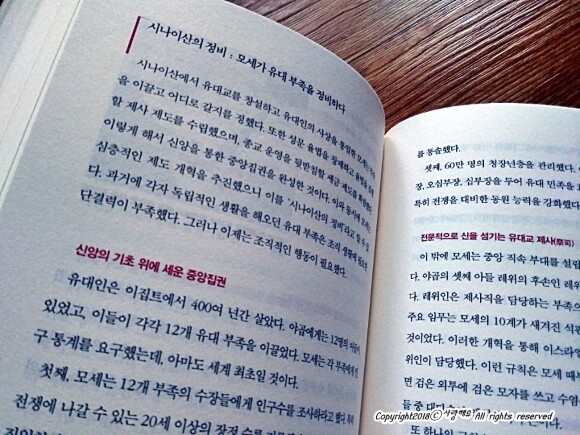 시나이산의 정비 : 모세가 유대 부족을 정비하다
시나이산에서 유대교를 창설하고 유대인의 사상을 통일한 모세는
을 이끌고 어디로 갈지를 정했다. 또한 성문 율법을 정하고 율법을
할 제사 제도를 수립했으며, 종교 운영을 뒷받침할 세금 제도를
이렇게 해서 신앙을 통한 중앙집권을 완성한 것이다. 이와 동시에
심층적인 제도 개혁을 추진했으니 이를 '시나이산의 정비'라고
다. 과거에 각자 독립적인 생활을 해오던 유대 부족은 조직 생활에
단결력이 부족했다. 그러나 이제는 조직적인 행동이 필요했다.
신앙의 기초 위에 세운 중앙집권
유대인은 이집트에서 400여 년간 살았다. 야곱에게는 12명의
있었고, 이들이 각각 12개 유대 부족을 이끌었다. 모세는 각 부족에게
구 통계를 요구했는데, 아마도 세계 최초일 것이다.
첫째, 모세는 12개 부족의 수장들에게 인구수를 조사하라고 했다.
전쟁에 나갈 수 있는 20세 이상의 장정 수를
를 통솔했다.
셋째, 60만 명의 청장년층을 관리했다.
장, 오십부장, 십부장을 두어 유대 민족을
특히 전쟁을 대비한 동원 능력을 강화했다
전문적으로 신을 섬기는 유대교 제사(祭司)
이 밖에 모세는 중앙 직속 부대를 설립
다. 야곱의 셋째 아들 레위의 후손인 레위
다. 레위인은 제사직을 담당하는 부족으
주요 임무는 모세의 10계가 새겨진 석판
것이었다. 이러한 개혁을 통해 이스라엘
위인이 담당했다. 이런 규칙은 모세 때부
면 검은 외투에 검은 모자를 쓰고 수염
들 중 대다
Copyright2018ⓒ사랑해요 All rights reserved